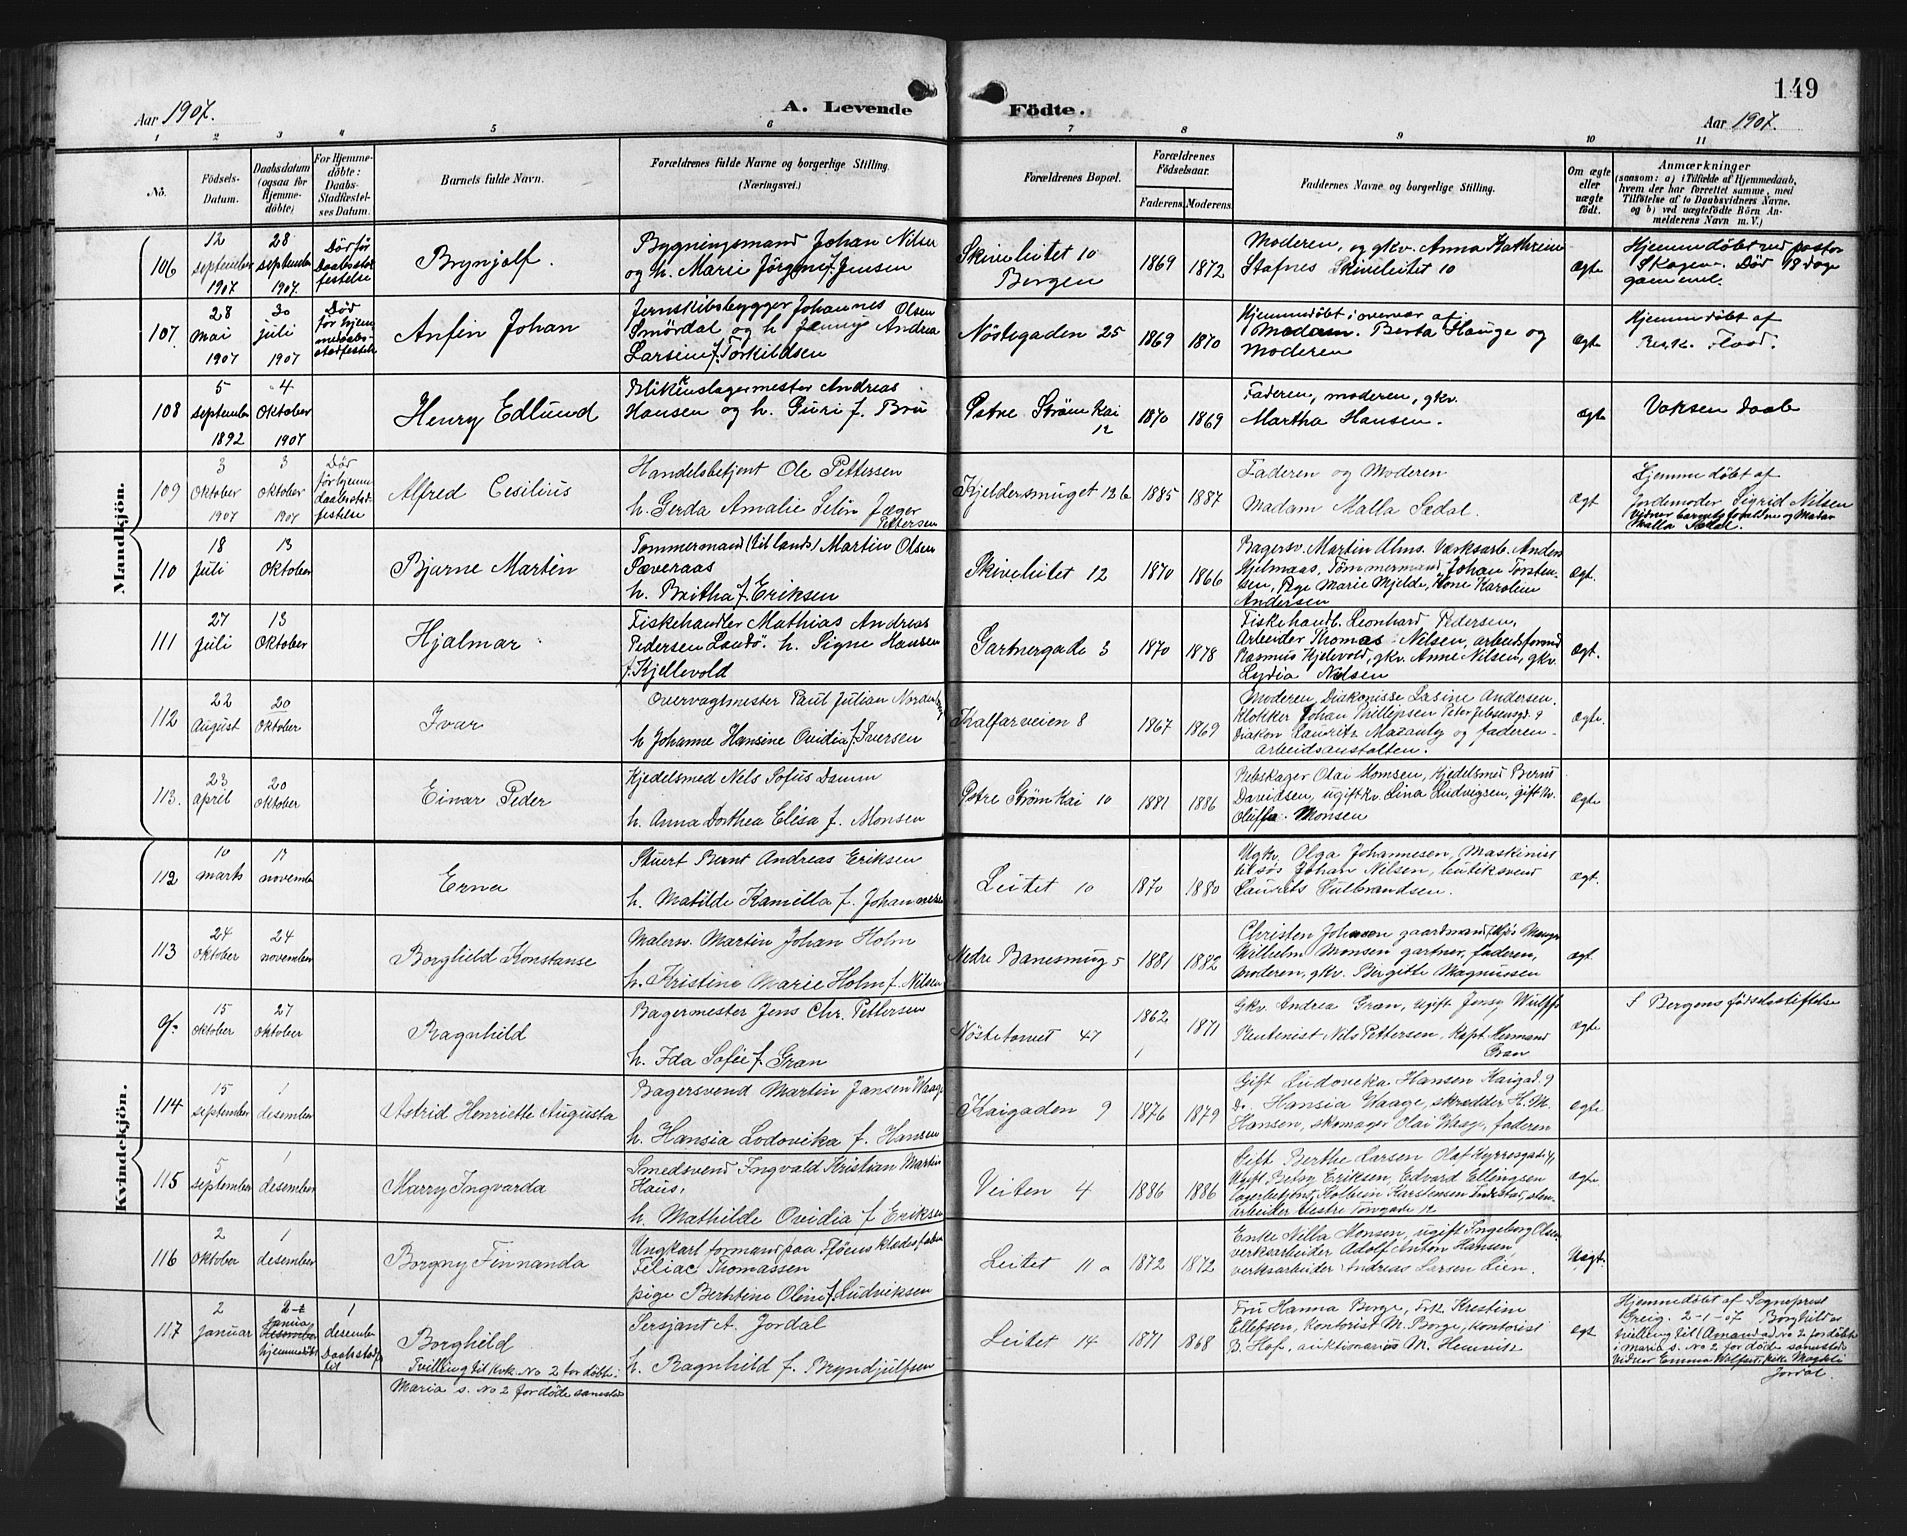 149
Aar 1907.
A. Levende
Födte.
Aar 1907.
1 2 3 4 5 6 7 8 9 10 11
No.
Födsels-Datum.
Daabsdatum (ogsaa for Hjemme-döbte)
For Hjemme-döbte: Daabs-Stadfæstel-ses Datum.
Barnets fulde Navn.
Forældrenes fulde Navne og borgerlige Stilling.
(Næringsvei.)
Forældrenes Bopæl.
Forældrenes Födselsaar.
Faderens. Moderens.
Faddernes Navne og borgerlige Stilling.
Om ægte eller uægte födt.
Anmærkninger
(saasom: a) i Tilfælde af Hjemmedaab, hvem der har forrettet samme, med Tilföielse af to Daabsvidners Navne, og b) ved uægtefödte Börn An-melderens Navn m. V.)
Mandkjön.
106
12 september 1907
28 september 1907.
Död før Daabsstadfestelse
Brynjolf.
Bygningsmand Johan Nilsen
og h. Marie Jörgine f. Jensen
Skiveleitet 10
Bergen
1869 1872
Moderen, og gkv. Anna Kathrine
Stafnes Skiveleitet 10
Ægte
Hjemmedøbt ved pastor
Skagen. Död 18 dage
gammel.
107.
28 Mai 1907
30 juli 1907
Død før hjemmedaabsstadfestelse
Anfin Johan
Jernskibsbygger Johannes Olsen
Smördal og h. Jenny Andrea
Larsine f. Torkildsen
Nöstegaden 25
1869 1870
Hjemmedøbt i overvær af
Madam. Berta Hauge og
Moderen
Ægte
Hjemmedøbt af
Res.k. Flood.
108
5 september 1892
4 Oktober 1907
Henry Edlund
Blikkenslagermester Andreas
Hansen og h. Guri f. Bru
Østre Strøm Kai
12
1870 1869
Faderen, moderen, gkv.
Martha Hansen.
Ægte
Voksen daab
109
3 Oktober 1907
3 Oktober 1907
Død før hjemmedaabsstadfestelse
Alfred Cesilius
Handelsbetjent Ole Pettersen
h. Gerda Amalie Selin Jæger
Pettersen
Kjeldersmuget 12 b
1885 1887
Faderen og Moderen
Madam Malla Sædal.
Ægt
Hjemmedøbt af
Jordemoder Sigrid Nilsen
Vidner barnets forældre og Madam
Malla Sædal.
110
18 Juli
13 Oktober
Bjarne Martin
Tømmermand (til lands) Martin Olsen
Sæveraas
h. Britha f. Eriksen
Skiveleitet 12
1870 1866
Bagersv. Martin Alms. Værksarb. Anders
Hjelmaas, Tømmermand Johan Torsten-
sen, Pige Marie Mjelde, Kone Karoline
Andersen
Ægt.
111
27 juli
13 Oktober
Hjalmar
Fiskehandler Mathias Andreas
Pedersen Landö. h. Signe Hansen
f. Kjellevold
Gartnergade 3
1870 1878
Fiskehandl. Leonhard Pedersen,
Arbeider Thomas Nilsen, arbeidsformd
Rasmus Kjelevold, gkv. Anne Nilsen, gkv.
Lydia Nilsen
Ægt.
112
22 August
20 Oktober
Ivar
Overvagtmester Paul Julian Nordenborg
h Johanne Hansine Ovidia f. Iversen
Kalfarveien 8
1867 1869
Moderen, Diakonisse Lasine Andersen.
Klokker Johan Phillipsen Peter Jebsensgd. 9
Diakon Lauritz Mazanty og faderen -
arbeidsanstalten.
Ægte.
113.
23 april
20 oktober
Einar Peder
Kjedelsmed Nels Sofus Damm
h. Anna Dorthea Elisa f. Monsen
Østre Strøm Kai 10
1881 1886
Rebslager Olai Momsen, Kjedelsmed Berus
Davidsen, ugift kv. Lina Ludvigsen, gift kv.
Oluffa Monsen
Ægte
Kvindekjön.
112
10 marts
17 november
Erna
Stuert Bernt Andreas Eriksen
h. Matilde Kamilla f. Johannesen
Leitet 10
1870 1880
Ugkv. Olga Johannesen, Maskinist
til søs Johan Nilsen, butiksvend
Laurits Gulbrandsen.
Ægt.
113
24 oktober
24 november
Borghild Konstanse
Malersv. Martin Johan Holm
h. Kristine Marie Holm f. Nilsen
Nedre Banesmug 5
1881 1882
Christen Johnsen gaardmand,
Wilhelm Monsen gartner, faderen,
Moderen, gkv. Birgitte Magnussen
ægt.
15 oktober
27 oktober
Ragnhild
Bagermester Jens Chr. Pettersen
h. Ida Sofie f. Gran
Nöstetorvet 47
1862 1871
Gkv. Andrea Gran, ugift Jensy Wulff
Rentenist Nils Pettersen, Kapt. Herman
Gran
Ægte
I Bergens fødselsstiftelse
114
15 september
1 desember
Astrid Henriette Augusta
Bagersvend Martin Jansen Waage
h. Hansia Lodovika f. Hansen
Kaigaden 9
1876 1879
Gift Ludovika Hansen Kaigad. 9
Do. Hansia Waage, skrædder H. M.
Hansen, skomager Olai Waage, faderen
Ægte
115
5 september
1 desember
Marry Ingvarda
Smedsvend Ingvald Kristian Martin
Haus,
h. Mathilde Ovidia f Eriksen
Veiten 4
1886 1886
Gift Berthe Larsen Olaf Kyrresgate 4,
Ugift Betsy Eriksen, Edvard Ellingsen
Lagerbetjent, Kolbein Karstensen Indestad, sten-
arbeider Vestre Torvgade 12
Ægte.
116
2 oktober
1 desember
Borgny Finnanda
Ungkarl formand paa klædesfabr
Feliac Thomassen
pige Berthine Oline f. Ludviksen
Leitet 11 a
1872 1872
Enke Nilla Monsen, ugift Ingeborg Olsen
verksarbeider Adolf Anton Hansen
verksarbeider Andreas Larsen Lien.
Uægt.
117
2 Januar
2-1 Januar hjemmedøbt
1 desember Daabstadf
Borghild
Tvilling til Kvk. No 2 for dødte:
Maria s. No 2 for døde sammested
Sersjant A. Jordal
h. Ragnhild f. Bryndjulfsen
Leitet 14
1871 1868
Fru Hanna Borge, Frk. Kristine
Ellefsen, Kontorist M. Borge, Kontorist
B. Hof, auktionarius M. Hemvits
ægt
Hjemmedøbt af Sogneprest
Breig. 2-1-07 Borghild er
tvilling til (Amanda) No 2 for døbte
i maria s. No 2 for døde samested
Vidner Emma Wolfart, Magteli
Jordal.